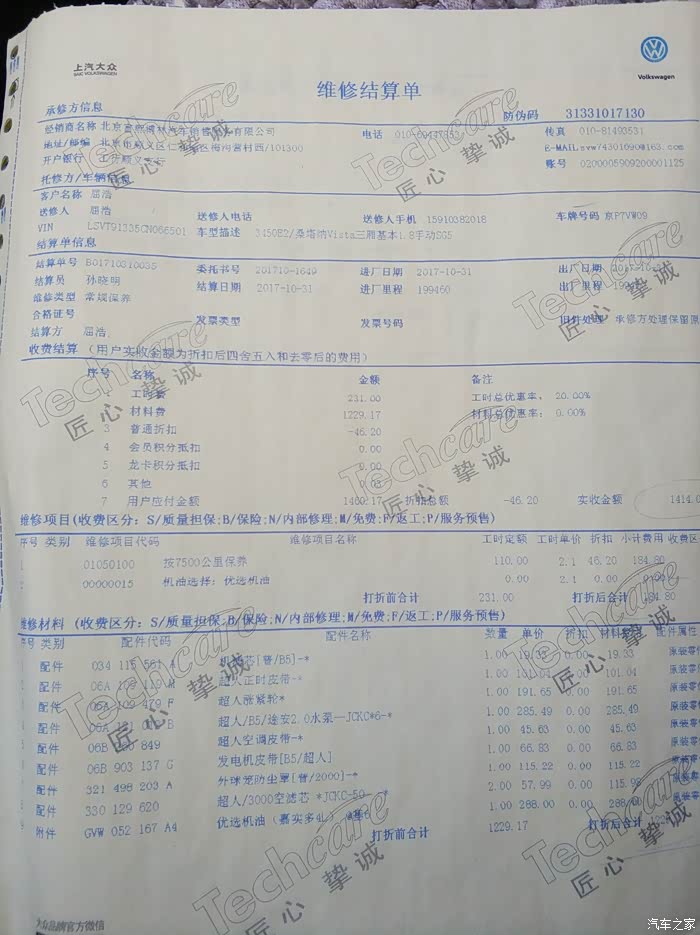 上汽大众
SAIC VOLKSWAGEN
Volkswagen
维修结算单
承修方信息
防伪码 31331017130
经销商名称 北京 汽车销售 有限公司 电话 传真 010-81493531
地址/邮编 北京市顺义区仁 区梅沟营村西/101300 E-MAIL svw74301090@163.com
开户银行 工 顺义 账号 0200005909200001125
托修方/车辆信息
客户名称 屈浩
送修人 屈浩 送修人电话 送修人手机 15910382018 车牌号码 京PTVW09
VIN LSVT91335CN066501 车型描述 3450B2/桑塔纳Vista三厢基本1.8手动SG5
结算单信息
结算单号 B01710310035 委托书号 201710-1649 进厂日期 2017-10-31 出厂日期 2017-10-
结算员 孙晓明 结算日期 2017-10-31 进厂里程 199460 出厂里程
维修类型 常规保养
合格证号 发票类型 发票号码 旧件处理 承修方处理保留原
结算方 屈浩
收费结算 (用户实收金额为折扣后四舍五入和去零后的费用)
序号 名称 金额 备注
工时费 231.00 工时总优惠率: 20.00%
材料费 1229.17 材料总优惠率: 0.00%
3 普通折扣 -46.20
4 会员积分抵扣 0.00
5 龙卡积分抵扣 0.00
6 其他
7 用户应付金额 1460.17 折扣总额 -46.20 实收金额 1414.0
维修项目(收费区分: S/质量担保;B/保险;N/内部修理;M/免费;F/返工;P/服务预售)
序号 类别 维修项目代码 维修项目名称 工时定额 工时单价 折扣 小计费用 收费区
01050100 按7500公里保养 110.00 2.1 46.20 184.80
00000015 机油选择: 优选机油 0.00 2.1 0.00
打折前合计 231.00 打折后合计 184.80
维修材料 (收费区分: S/质量担保;B/保险;N/内部修理;M/免费;F/返工;P/服务预售)
序号 类别 配件代码 配件名称 数量 单价 折扣 材料 配件属性
配件 034 115 561 A 芯[普/B5]-* 1.00 19.33 0.00 19.33 原装零
配件 06A 109 119 M 超人正时皮带-* 1.00 101.04 0.00 101.04 原装零
配件 06A 109 479 F 超人涨紧轮* 1.00 191.65 0.00 191.65 原装零
配件 06A 121 B 超人/B5/途安2.0水泵-JCKC*6-* 1.00 285.49 0.00 285.49 原装零
配件 06B 849 超人空调皮带-* 1.00 45.63 0.00 45.63
配件 06B 903 137 G 发电机皮带[B5/超人] 1.00 66.83 0.00 66.83
配件 321 498 203 A 外球笼防尘罩[普/2000]-* 1.00 115.22 0.00 115.22
配件 330 129 620 超人/3000空滤芯 *JCKC-50 2.00 57.99 0.00
附件 GVW 052 167 A4 优选机油(嘉实多4L) 1.00 288.00 0.00
打折前合计 1229.17 打折后合计
Techcare
匠心挚诚
大众品牌官方微信
汽车之家